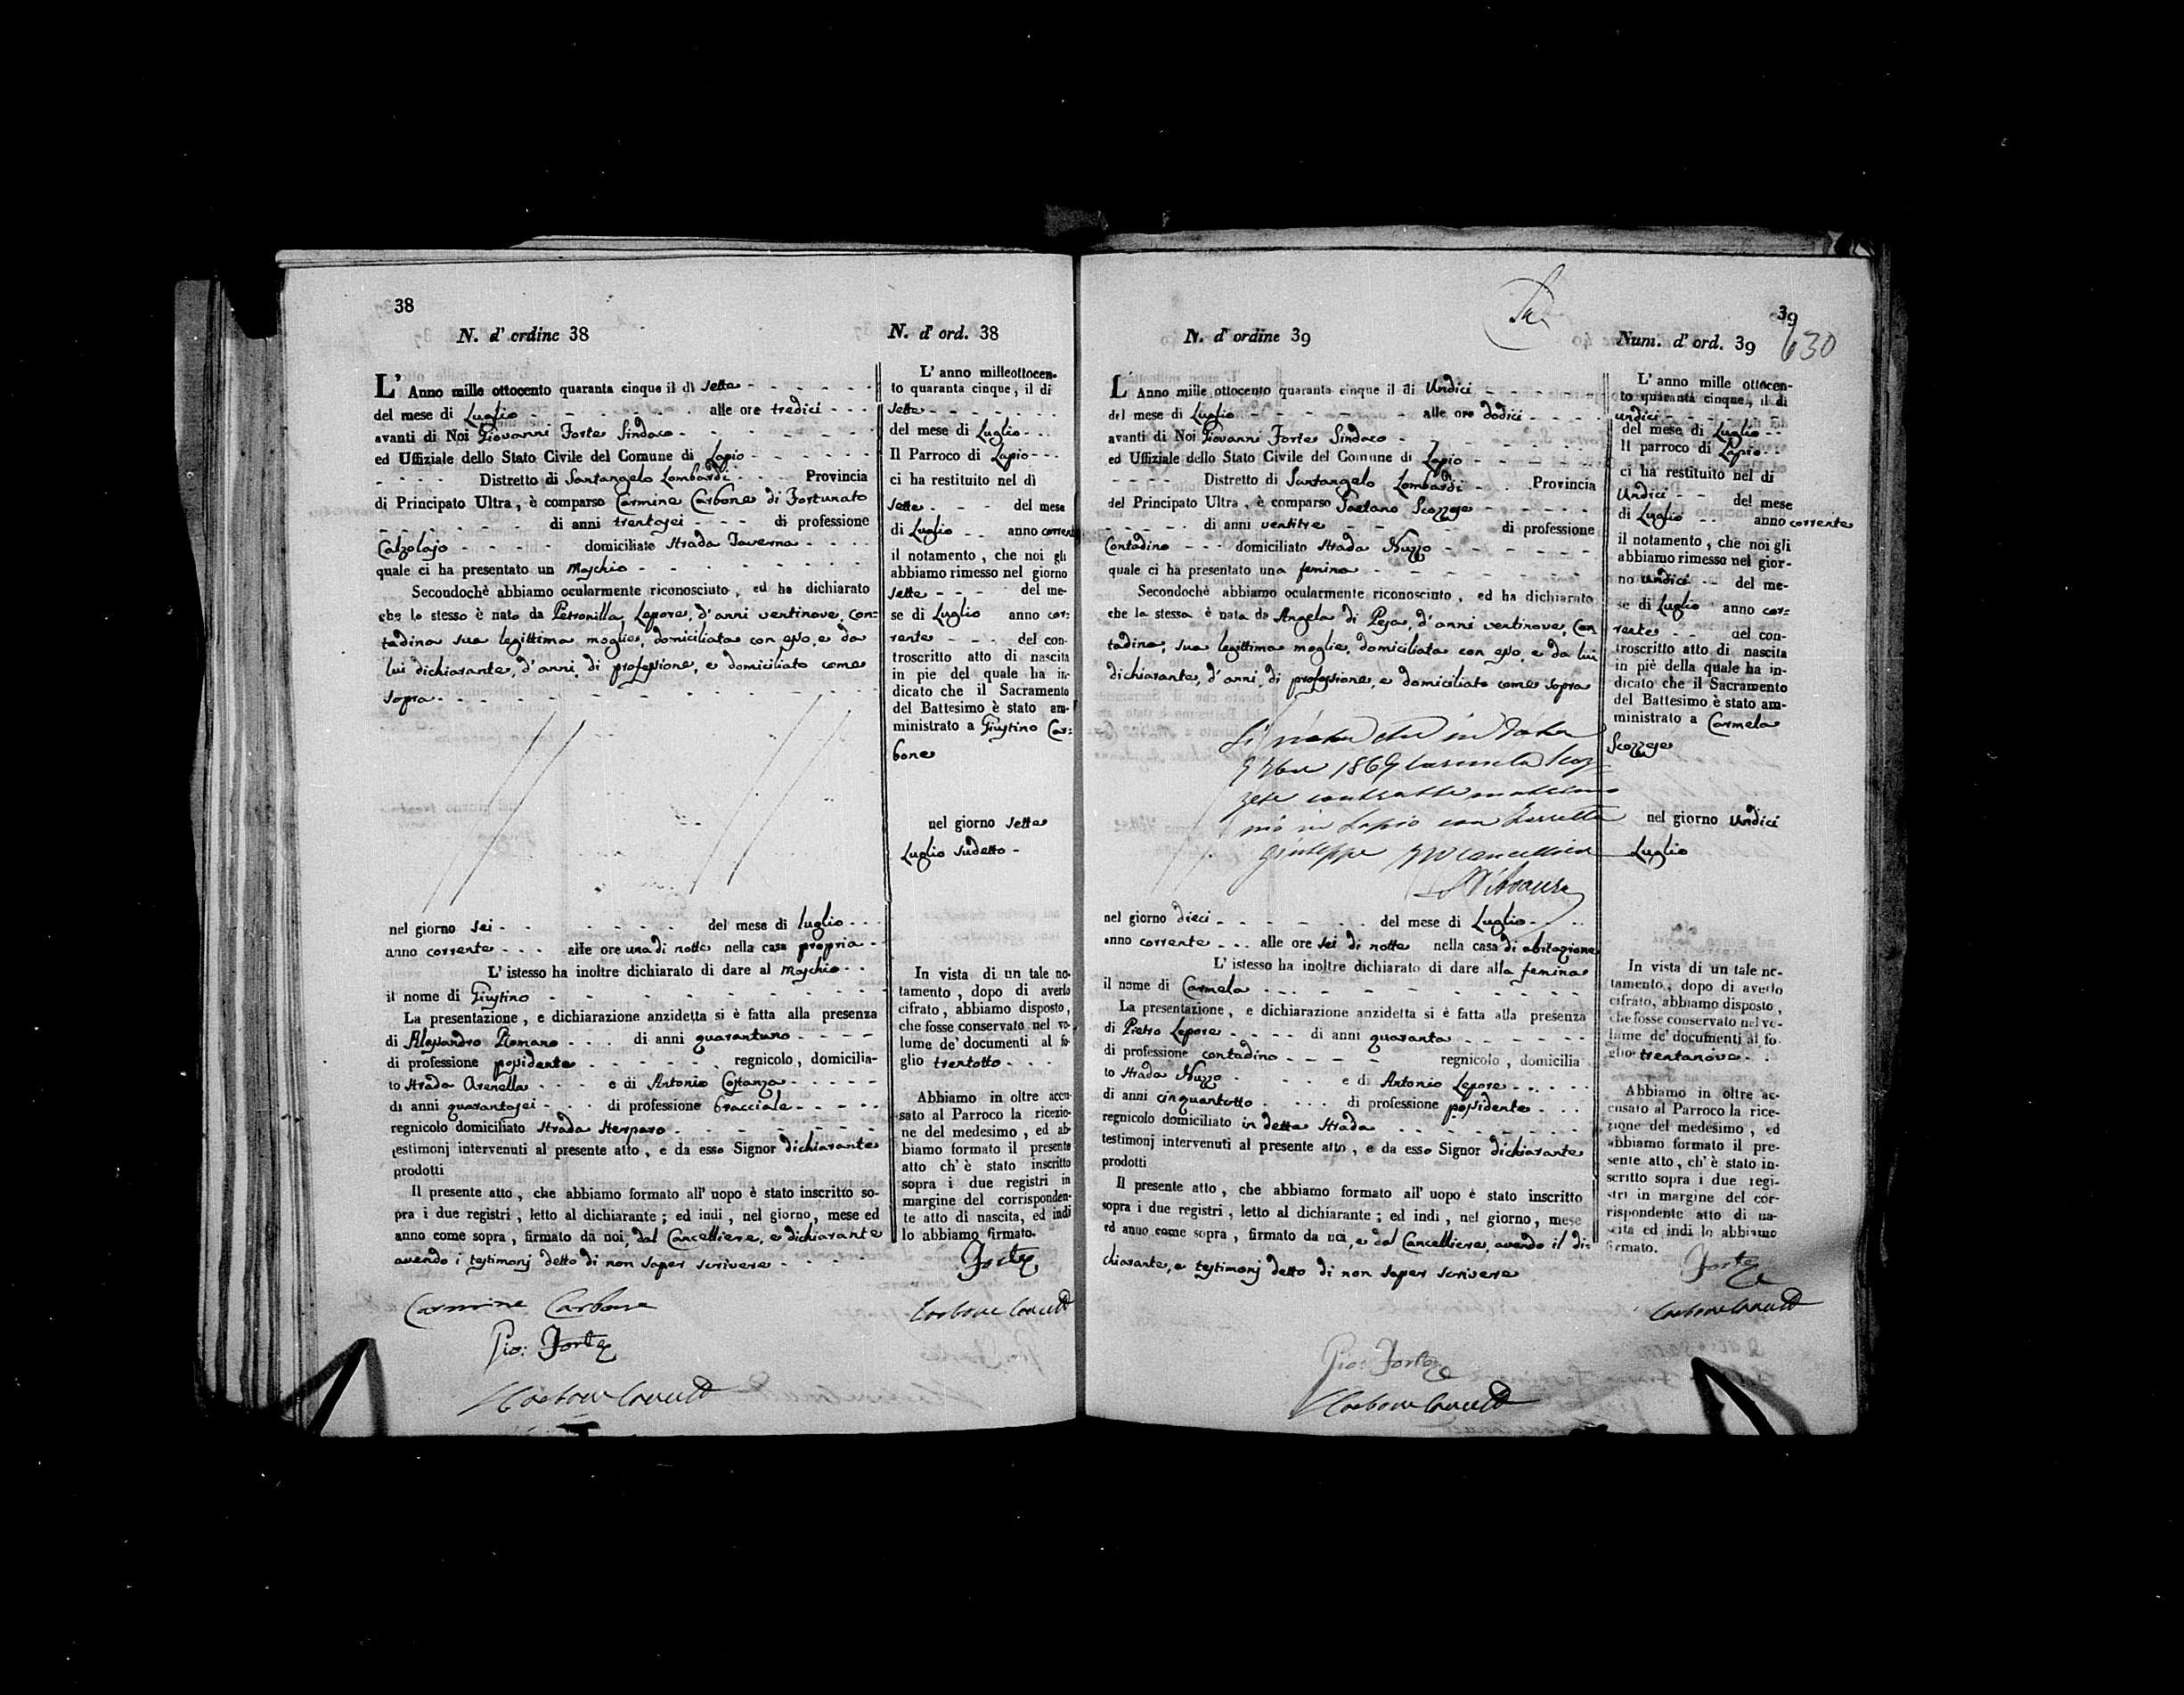 38
N. d' ordine 38
L' Anno mille ottocento quaranta cinque il dì Sette
del mese di Luglio alle ore tredici
avanti di Noi Giovanni Forte Sindaco
ed Uffiziale dello Stato Civile del Comune di Lapio
Distretto di Santangelo Lombardi Provincia
di Principato Ultra, è comparso Carmine Carbone di Fortunato
di anni trentasei di professione
Calzolajo domiciliato Strada Taverna
quale ci ha presentato un Maschio
Secondochè abbiamo ocularmente riconosciuto, ed ha dichiarato
che lo stesso è nato da Petronilla Lepore, d'anni ventinove, con=
tadina sua legittima moglie, domiciliata con esso, e da
lui dichiarante, d'anni, di professione, e domiciliato come
sopra
nel giorno sei del mese di luglio
anno corrente alle ore una di notte nella casa propria
L' istesso ha inoltre dichiarato di dare al Maschio
il nome di Giustino
La presentazione, e dichiarazione anzidetta si è fatta alla presenza
di Alessandro Romano di anni quarantuno
di professione possidente regnicolo, domicilia-
to Strada Arenella e di Antonio Costanza
di anni quarantasei di professione bracciale
regnicolo domiciliato Strada
testimonj intervenuti al presente atto, e da esso Signor dichiarante
prodotti
Il presente atto, che abbiamo formato all' uopo è stato inscritto so-
pra i due registri, letto al dichiarante; ed indi, nel giorno, mese ed
anno come sopra, firmato da noi, dal Cancelliere, e dichiarante
avendo i testimonj detto di non saper scrivere
Carmine Carbone
Gio: Forte
Carbone
N. d' ord. 38
L' anno milleottocen-
to quaranta cinque, il di
Sette
del mese di Luglio
Il Parroco di Lapio
ci ha restituito nel dì
Sette del mese
di Luglio anno corrente
il notamento, che noi gli
abbiamo rimesso nel giorno
Sette del me-
se di Luglio anno cor=
rente del con-
troscritto atto di nascita
in pie del quale ha in-
dicato che il Sacramento
del Battesimo è stato am-
ministrato a Giustino Car=
bone
nel giorno Sette
Luglio sudetto
In vista di un tale no-
tamento, dopo di averlo
cifrato, abbiamo disposto,
che fosse conservato nel vo-
lume de' documenti al fo-
glio trentotto
Abbiamo in oltre accu-
sato al Parroco la ricezio-
ne del medesimo, ed ab-
biamo formato il presente
atto ch' è stato inscritto
sopra i due registri in
margine del corrisponden-
te atto di nascita, ed indi
lo abbiamo firmato.
Forte
Carbone
39
630
N. d' ordine 39
L' Anno mille ottocento quaranta cinque il di Undici
del mese di Luglio alle ore dodici
avanti di Noi Giovanni Forte Sindaco
ed Uffiziale dello Stato Civile del Comune di Lapio
Distretto di Santangelo Lombardi Provincia
del Principato Ultra, è comparso Gaetano Scozzese
di anni ventitre di professione
Contadino domiciliato Strada Nuzzo
quale ci ha presentato una femina
Secondochè abbiamo ocularmente riconosciuto, ed ha dichiarato
che la stessa è nata da Angela di Pesa, d'anni ventinove, con
tadina, sua legittima moglie, domiciliata con esso, e da lui
dichiarante, d'anni, di professione, e domiciliato come sopra
Si nota che in data
1869 Carmela Scoz-
zese contratto matrimo
nio in Lapio con
Giuseppe
nel giorno dieci del mese di Luglio
anno corrente alle ore sei di notte nella casa di abitazione
L' istesso ha inoltre dichiarato di dare alla femina
il nome di Carmela
La presentazione, e dichiarazione anzidetta si è fatta alla presenza
di Pietro Lepore di anni quaranta
di professione contadino regnicolo, domicilia
to Strada Nuzzo e di Antonio Lepore
di anni cinquantotto di professione possidente
regnicolo domiciliato in detta Strada
testimonj intervenuti al presente atto, e da esso Signor dichiarante
prodotti
Il presente atto, che abbiamo formato all' uopo è stato inscritto
sopra i due registri, letto al dichiarante; ed indi, nel giorno, mese
ed anno come sopra, firmato da noi, e dal Cancelliere, avendo il di=
chiarante, e testimonj detto di non saper scrivere
Gio: Forte
Carbone
Num. d' ord. 39
L' anno mille ottocen-
to quaranta cinque, il di
undici
del mese di Luglio
Il parroco di Lapio
ci ha restituito nel di
Undici del mese
di Luglio anno corrente
il notamento, che noi gli
abbiamo rimesso nel gior-
no undici del me-
se di Luglio anno cor=
rente del con-
troscritto atto di nascita
in piè della quale ha in-
dicato che il Sacramento
del Battesimo è stato am-
ministrato a Carmela
Scozzese
nel giorno Undici
Luglio
In vista di un tale no-
tamento, dopo di averlo
cifrato, abbiamo disposto,
che fosse conservato nel vo-
lume de' documenti al fo-
glio trentanove
Abbiamo in oltre ac-
cusato al Parroco la rice-
zione del medesimo, ed
abbiamo formato il pre-
sente atto, ch' è stato in-
scritto sopra i due regi-
stri in margine del cor-
rispondente atto di na-
scita ed indi lo abbiamo
firmato.
Forte
Carbone